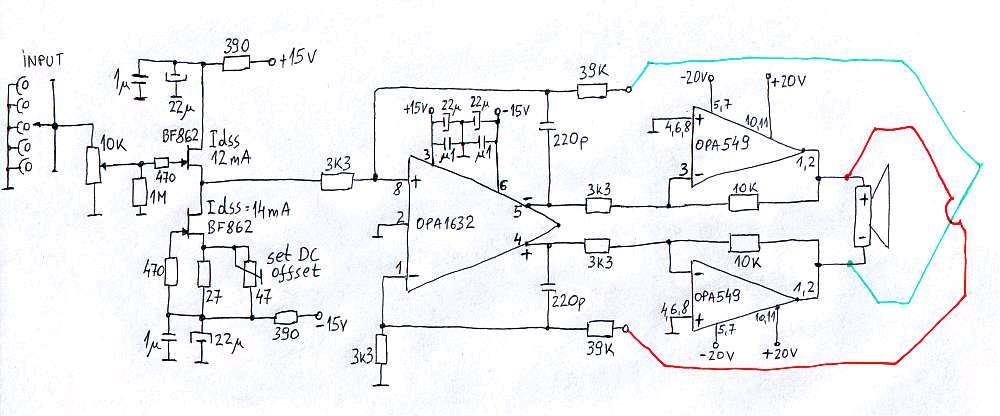 INPUT
10K
1µ
22µ
390
+15V
BF862
Idss
12mA
470
1M
Idss=14mA
BF862
470
27
47
set DC
offset
390
-15V
1µ
22µ
3K3
3K3
+15V
22µ
22µ
-15V
µ1
µ1
3
6
8
+
2
OPA1632
1
-
-
5
4
+
220p
220p
39K
39K
3K3
3K3
-20V
+20V
5,7
10,11
+
4,6,8
OPA549
3
-
1,2
10K
10K
-
OPA549
1,2
4,6,8
+
5,7
10,11
-20V
+20V
+
-